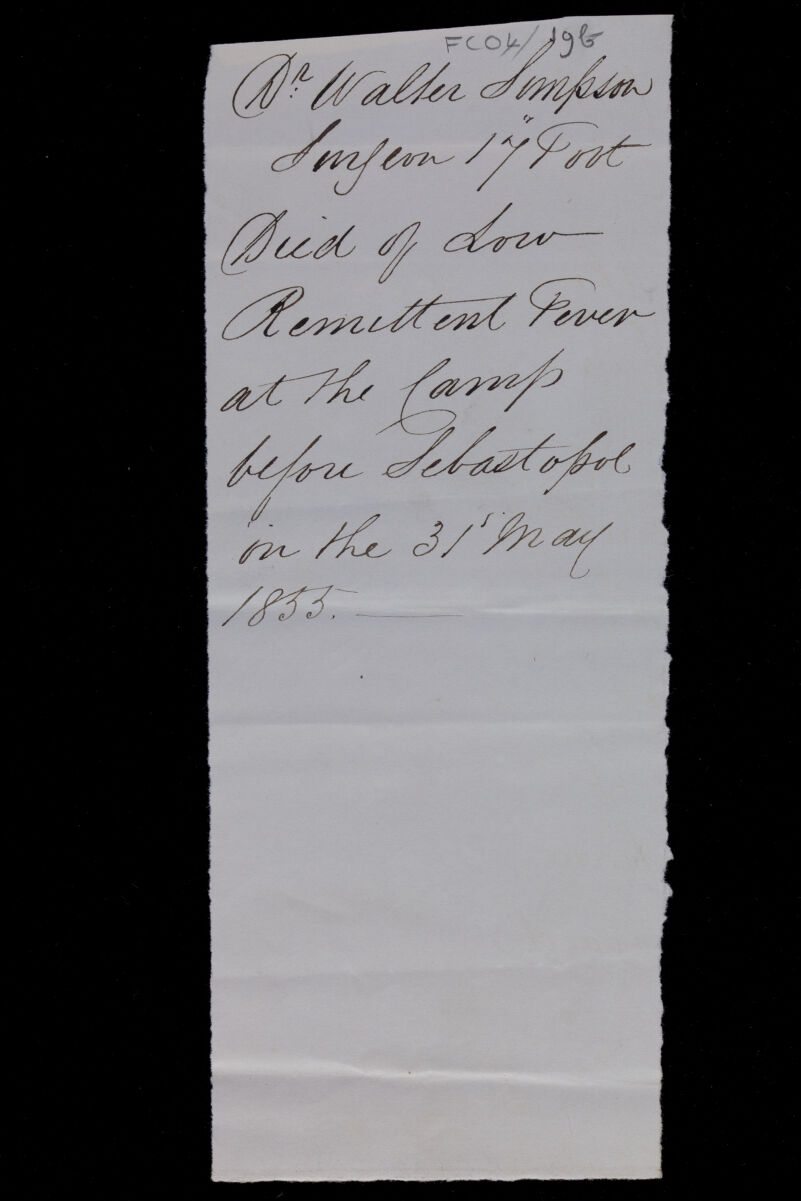 FCO4/19b
Dr. Walter Simpson
Surgeon 17" Foot
Died of Low
Remittent Fever
at the Camp
before Sebastopol
on the 31st May
1855.